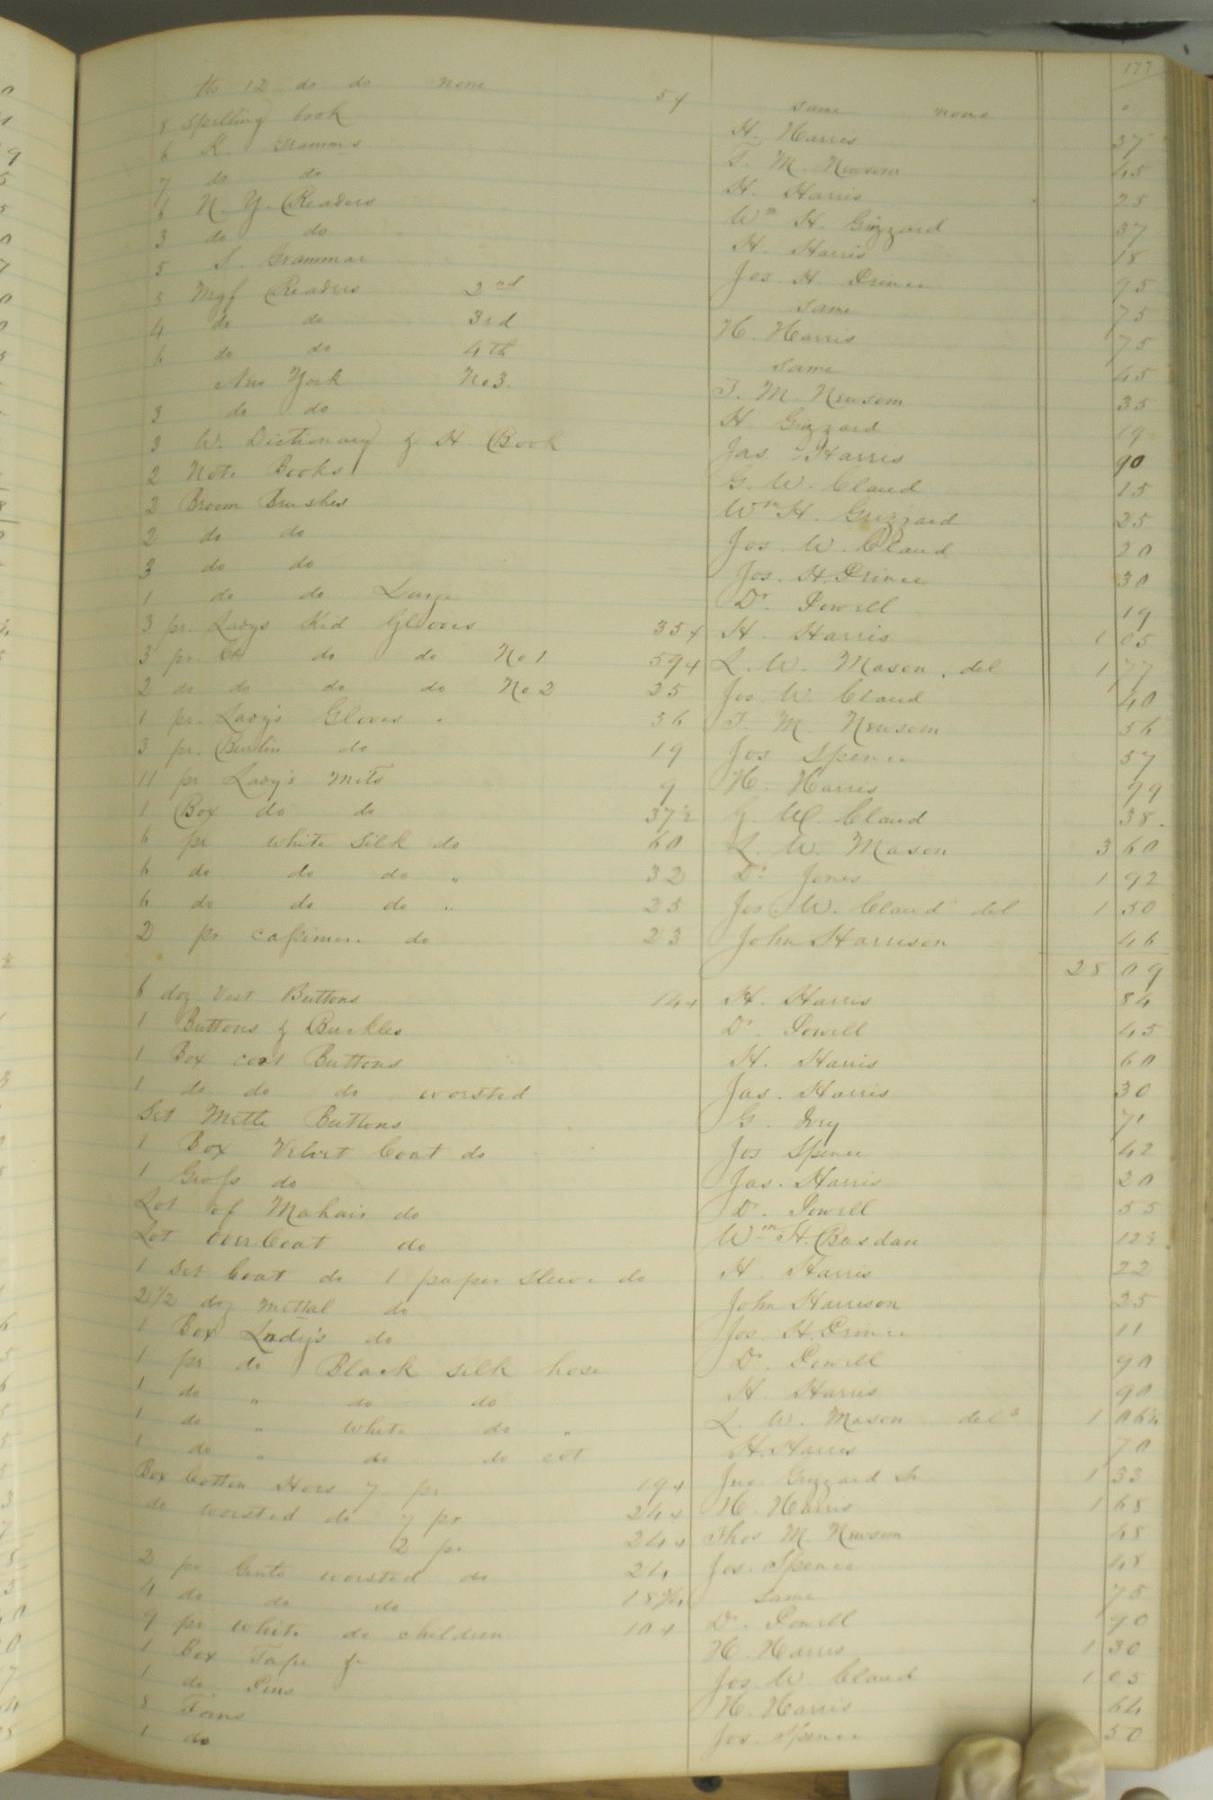 177
do do none 5¢ same none
8 Spelling book H. Harris 37
6 Grammrs T. M. Newsom 45
7 do do H. Harris 25
6 N. Y. Readers Wm H. Grizzard 37
3 do do H. Harris 18
5 S. Grammar Jos H. Prince 95
5 Mgf Readers 2nd same 75
4 do do 3rd H. Harris 75
6 do do 4th same 45
New York No 3. T. M. Newsom 35
3 do do H Grizzard 19
3 W. Dictionary & H Book Jas. Harris 90
2 Note Books G. W. Claud 15
2 Broom Brushes Wm H. Grizzard 25
2 do do Jos. W. Claud 20
3 do do Jos. H. Prince 30
1 do do Large Dr. Powell 19
3 pr. Ladys Kid Gloves 35¢ H. Harris 1 05
3 pr. do do No 1 59¢ L. W. Mason, del 1 77
2 do do do do No 2 25 Jos W Claud 40
1 pr. Lady's Gloves 56 T. M. Newsom 56
3 pr. Berlin do 19 Jos Spence 57
11 pr Lady's Mits 9 H. Harris 99
1 Box do do 37½ G. W. Claud 38
6 pr white silk do 60 L. W. Mason 3 60
6 do do do " 32 Dr Jones 1 92
6 do do do " 25 Jos. W. Claud del 1 50
2 pr casimere do 23 John Harrison 46
28 09
6 doz Vest Buttons 14¢ H. Harris 84
1 Buttons & Buckles Dr. Powell 45
1 Box coat Buttons H. Harris 60
1 do do do worsted Jas. Harris 30
Set Mettle Buttons G. Ivy 71
1 Box Velvet Coat do Jos Spence 42
1 Gross do Jas. Harris 20
Lot of Mahair do Dr. Powell 55
Lot over Coat do Wm H. Basdan 12½
1 Set Coat do 1 paper Sleeve do H. Harris 22
2 1/2 doz mettal do John Harrison 25
1 Box Lady's do Jos. H. Prince 11
1 pr do Black silk hose Dr. Powell 90
1 do " do do H. Harris 90
1 do " white do " L. W. Mason deld 1 06¼
1 do " do do cot H. Harris 70
Box Cotton Hors 7 pr 19¢ Jno Grizzard Sr 1 33
do worsted do 7 pr 24¢ H. Harris 1 68
2 pr 24¢ Thos M. Newsom 48
2 pr Gents worsted do 24 Jos. Spence 48
4 do do do 18¾ same 75
9 pr white do children 10¢ Dr. Powell 90
1 Box Tape & H. Harris 1 30
1 do Pins Jos. W. Claud 1 05
8 Fans H. Harris 64
1 do Jos. Spence 50